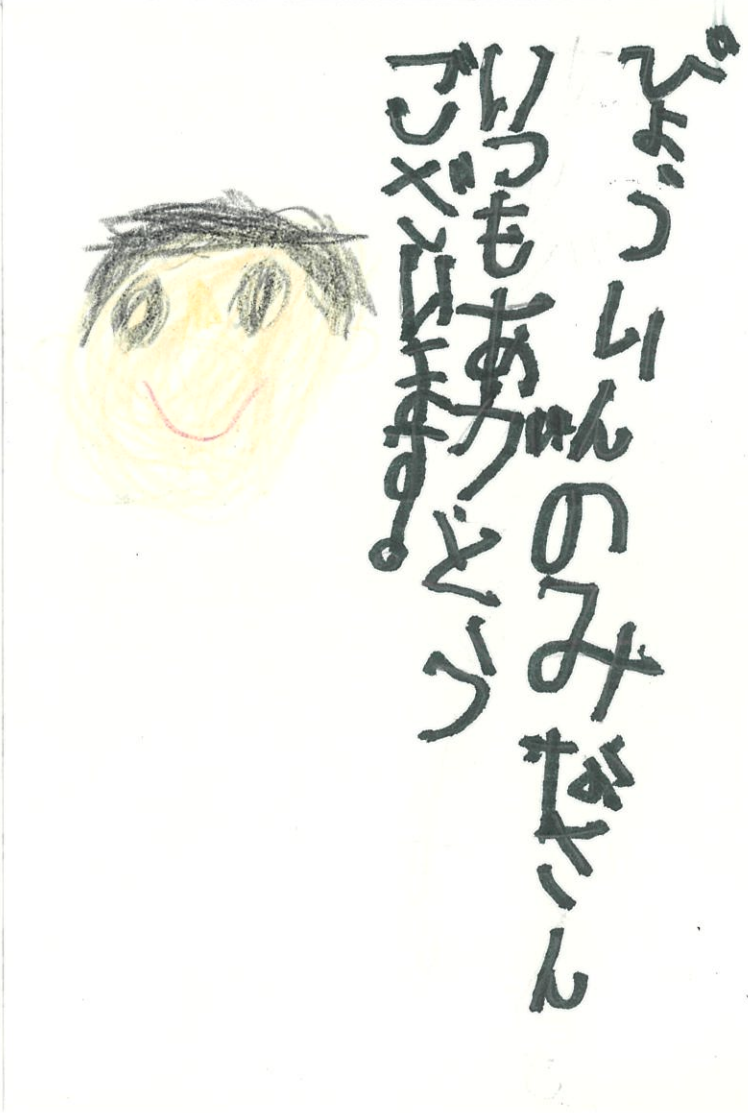 びょういんのみなさん
いつもありがとう
ございます。